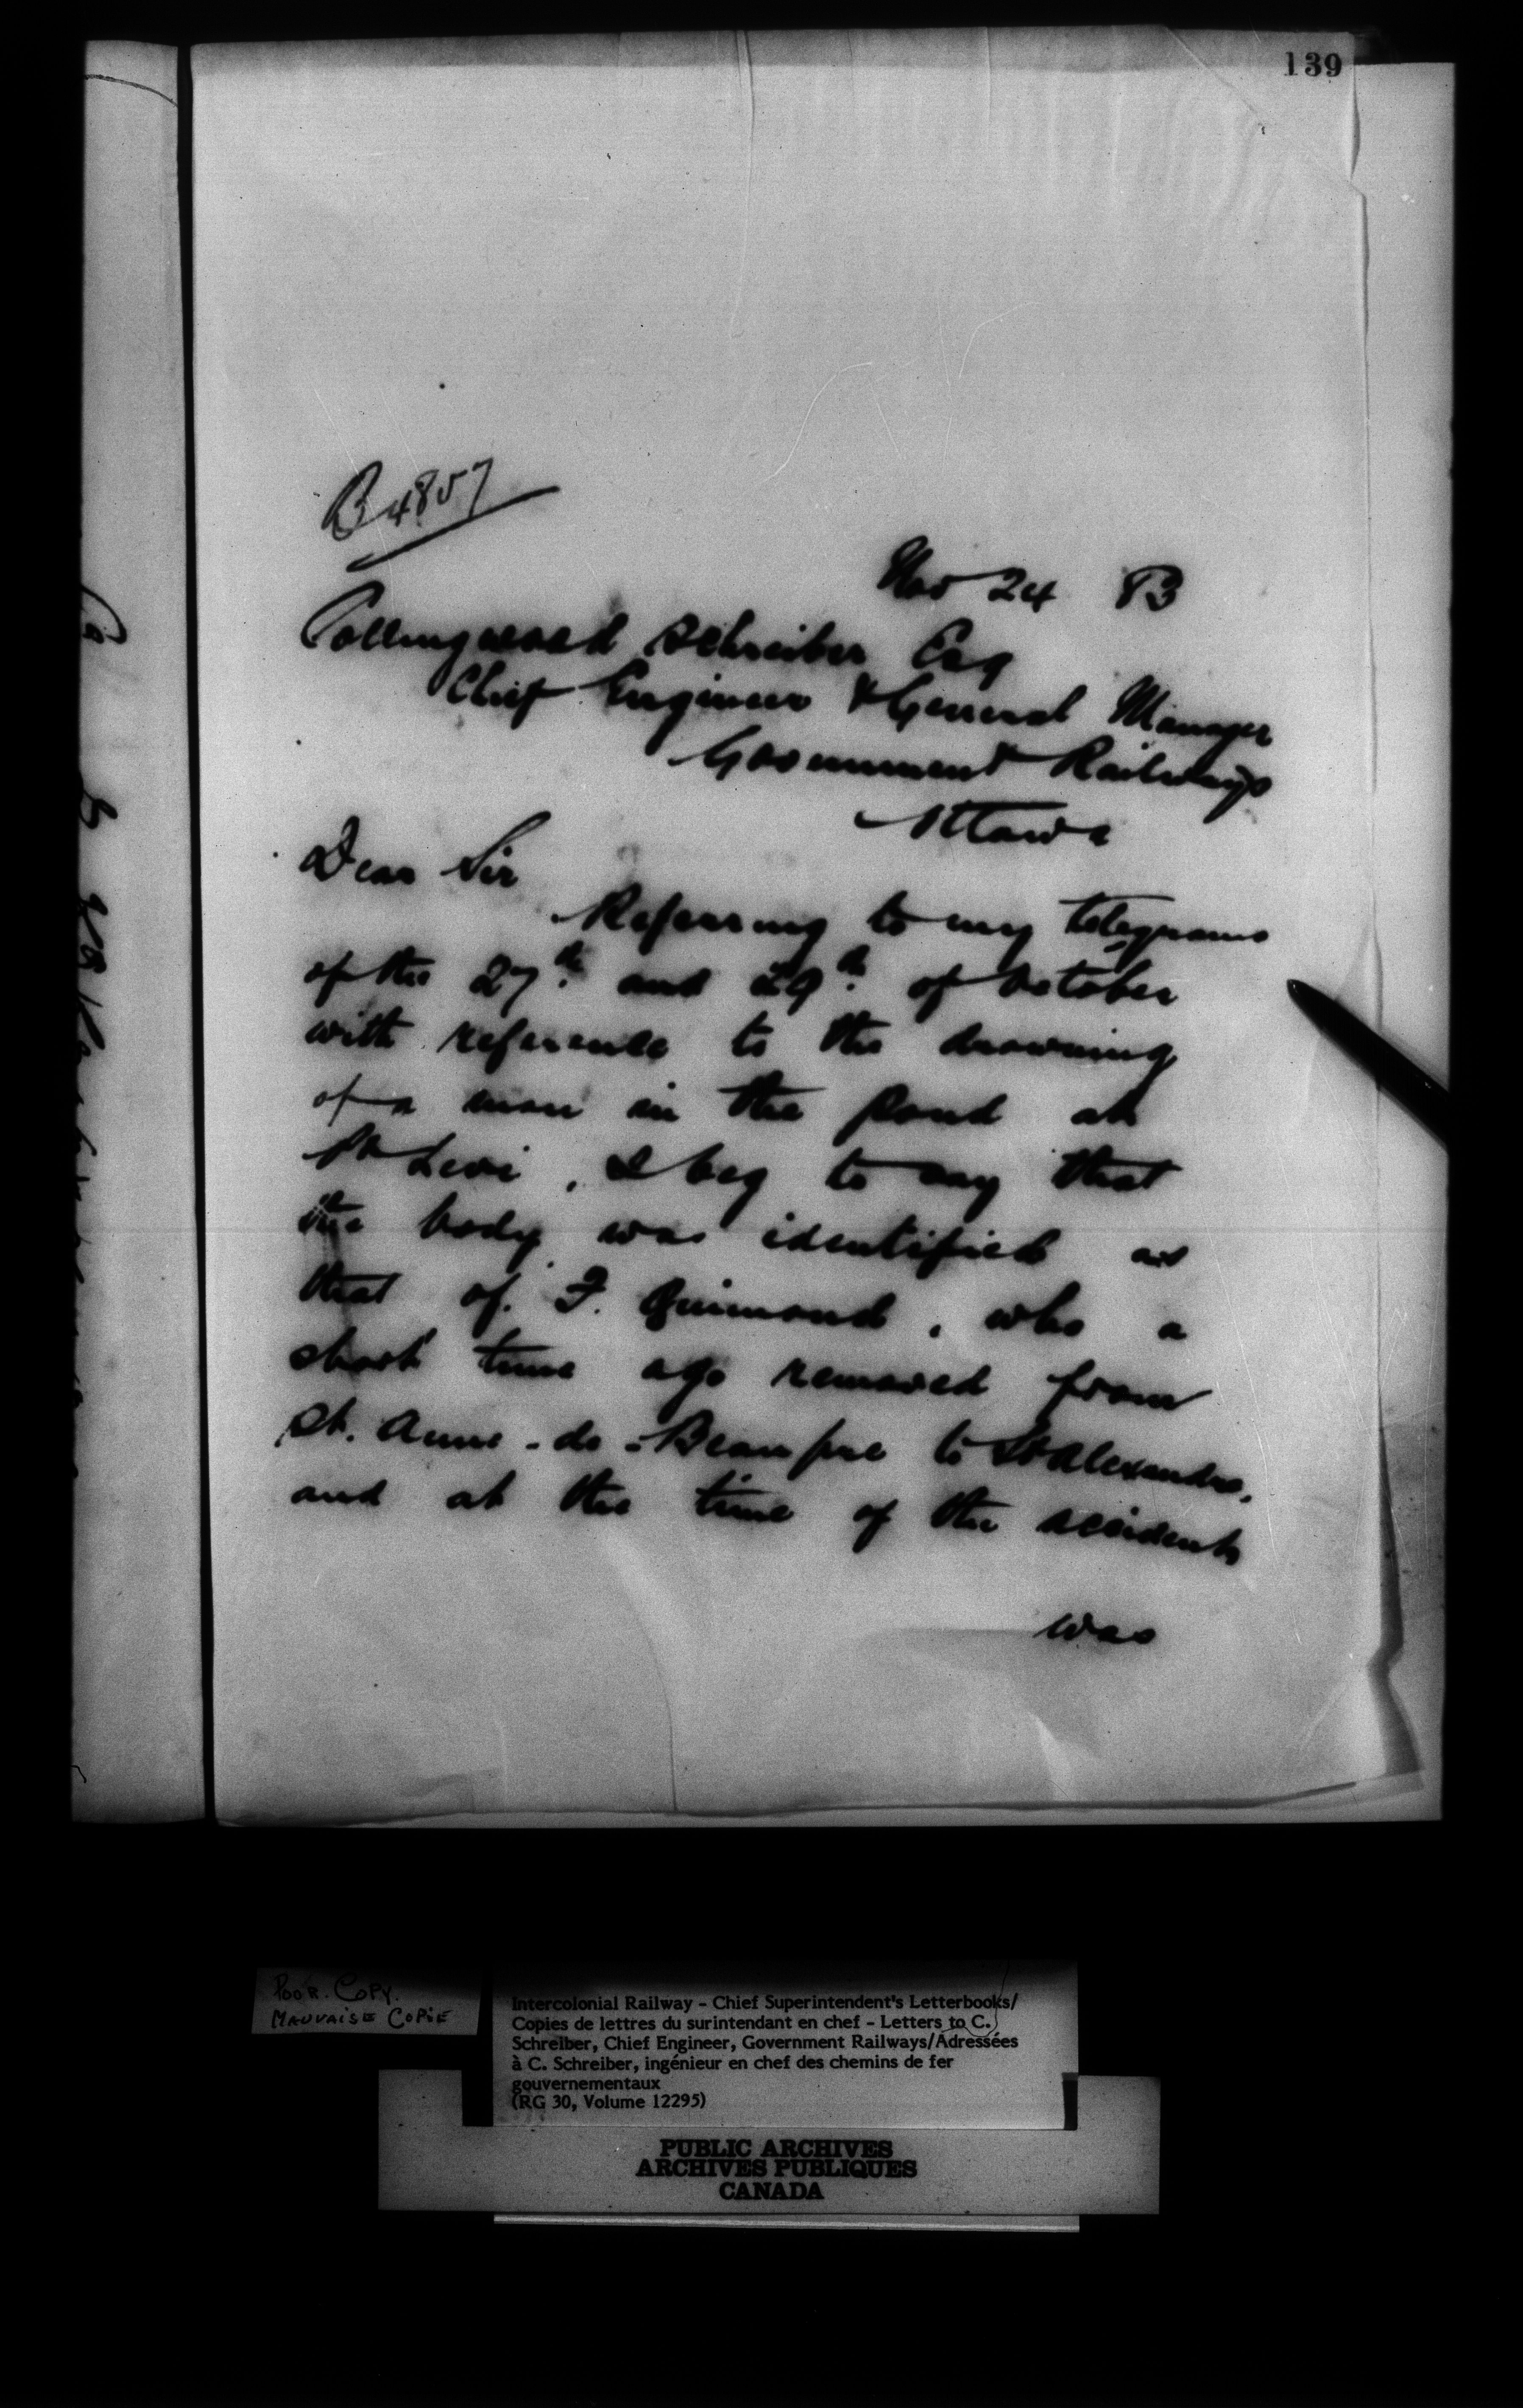 139
B4857
Nov 24 83
Collingwood Schreiber Esq
Chief Engineer & General Manager
Government Railways
Ottawa
Dear Sir
Referring to my telegrams
of the 27th and 29th of October
with reference to the drowning
of a man in the pond at
Pt Levi, I beg to say that
the body was identified as
that of F. Guimond, who a
short time ago removed from
St. Anne-de-Beaupre to St Alexandre,
and at the time of the accident
was
POOR. COPY.
MAUVAISE COPIE
Intercolonial Railway - Chief Superintendent's Letterbooks/
Copies de lettres du surintendant en chef - Letters to C.
Schreiber, Chief Engineer, Government Railways/Adressées
à C. Schreiber, ingénieur en chef des chemins de fer
gouvernementaux
(RG 30, Volume 12295)
PUBLIC ARCHIVES
ARCHIVES PUBLIQUES
CANADA